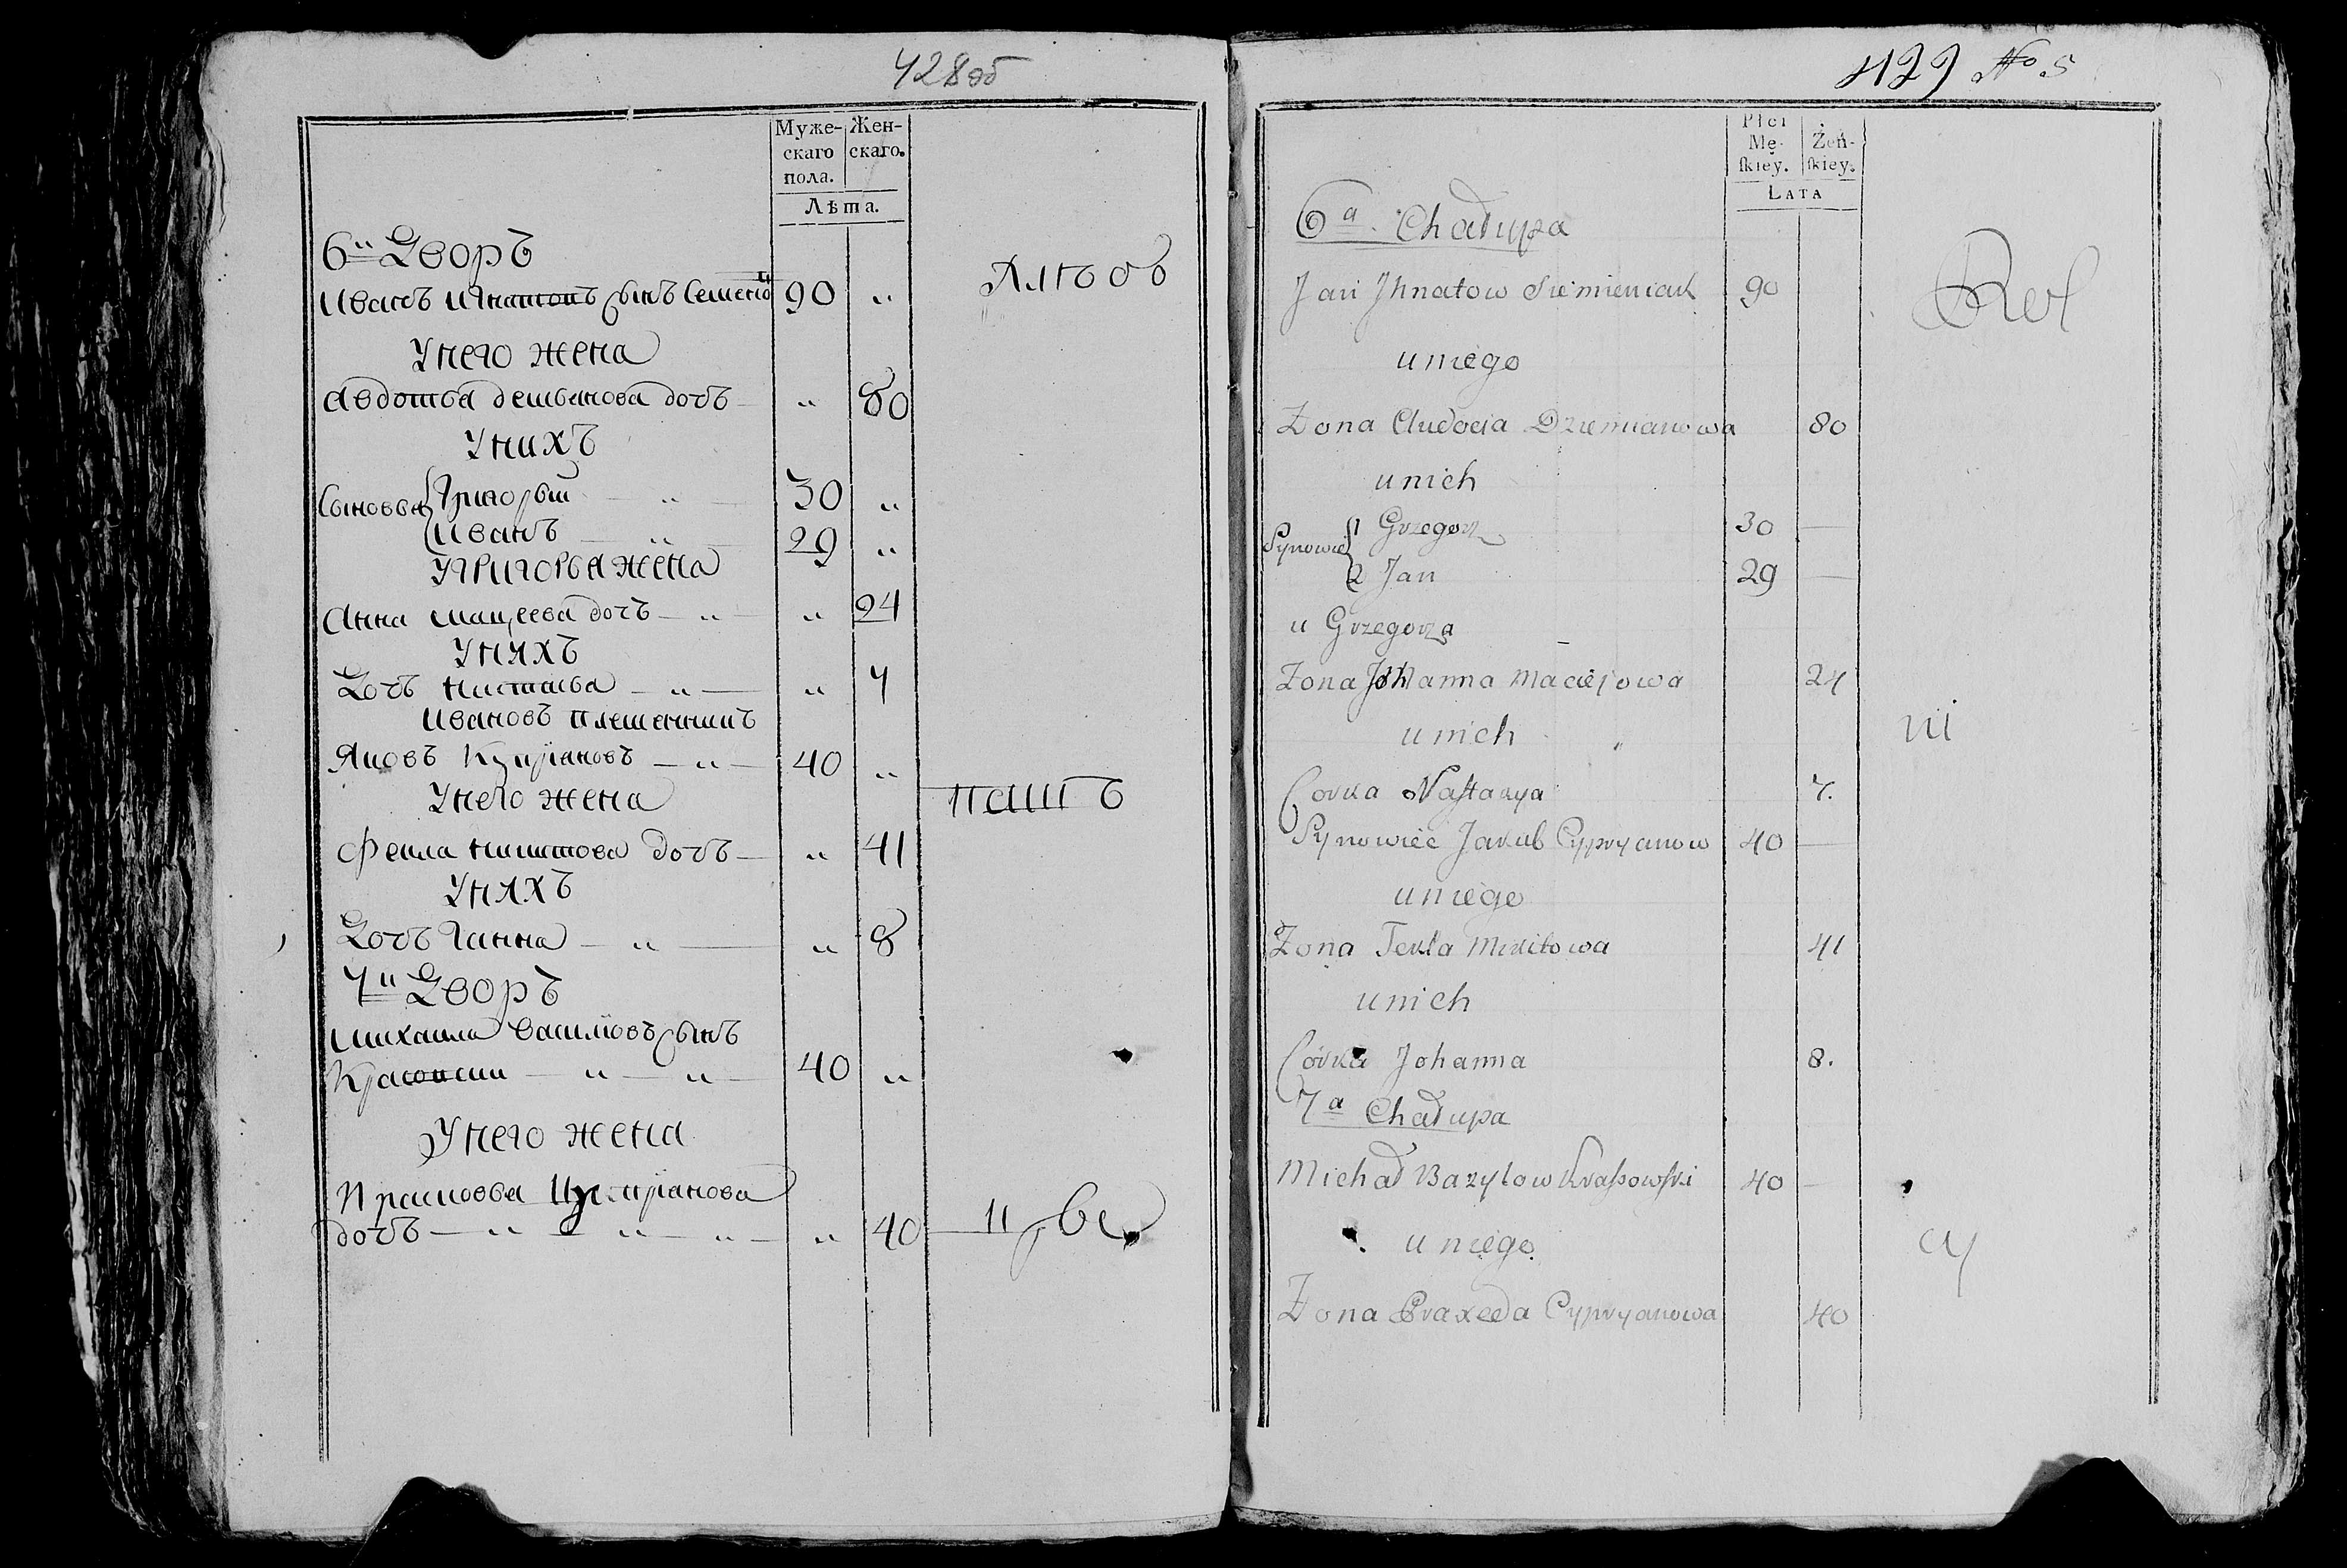 428об
Муже- Жен-
скаго скаго.
пола.
Лѣта.
6й Дворъ
Иванъ Игнатовъ сынъ Семени 90 "
Унего жена
Авдотья демьянова дочь " 80
Унихъ
Сыновья Григорьи " 30 "
Иванъ " 29 "
Угригорья жена
Анна мацеева дочь " " 24
Унихъ
Дочь настасья " " 7
Ивановъ племенникъ
Яковъ Купріановъ " 40 "
Унего жена
Фекла никитова дочь " 41
Унихъ
Дочь Ганна " " 8
7й Дворъ
Михаила васильовъ сынъ
Красовски " " 40 "
Унего жена
Прасковья Купріанова
дочь " " " " 40
429 No 5
Płci
Mę- Żeń-
ſkiey. ſkiey.
LATA
6a. Chałupa
Jan Jhnatow Siemieniak 90
u niego
Żona Audocia Dziemianowa 80
u nich
Synowie 1 Grzegorz 30 —
2 Jan 29 —
u Grzegorza
Żona Johanna Maciejowa 24
u nich
Corka Nastazya 7.
Synowiec Jakub Cypryanow 40 —
u niego
Żona Tekla Mikitowa 41
u nich
Córka Johanna 8.
7a Chałupa
Michał Bazylow Kraſsowſki 40 —
u niego
Żona Praxeda Cypryanowa 40